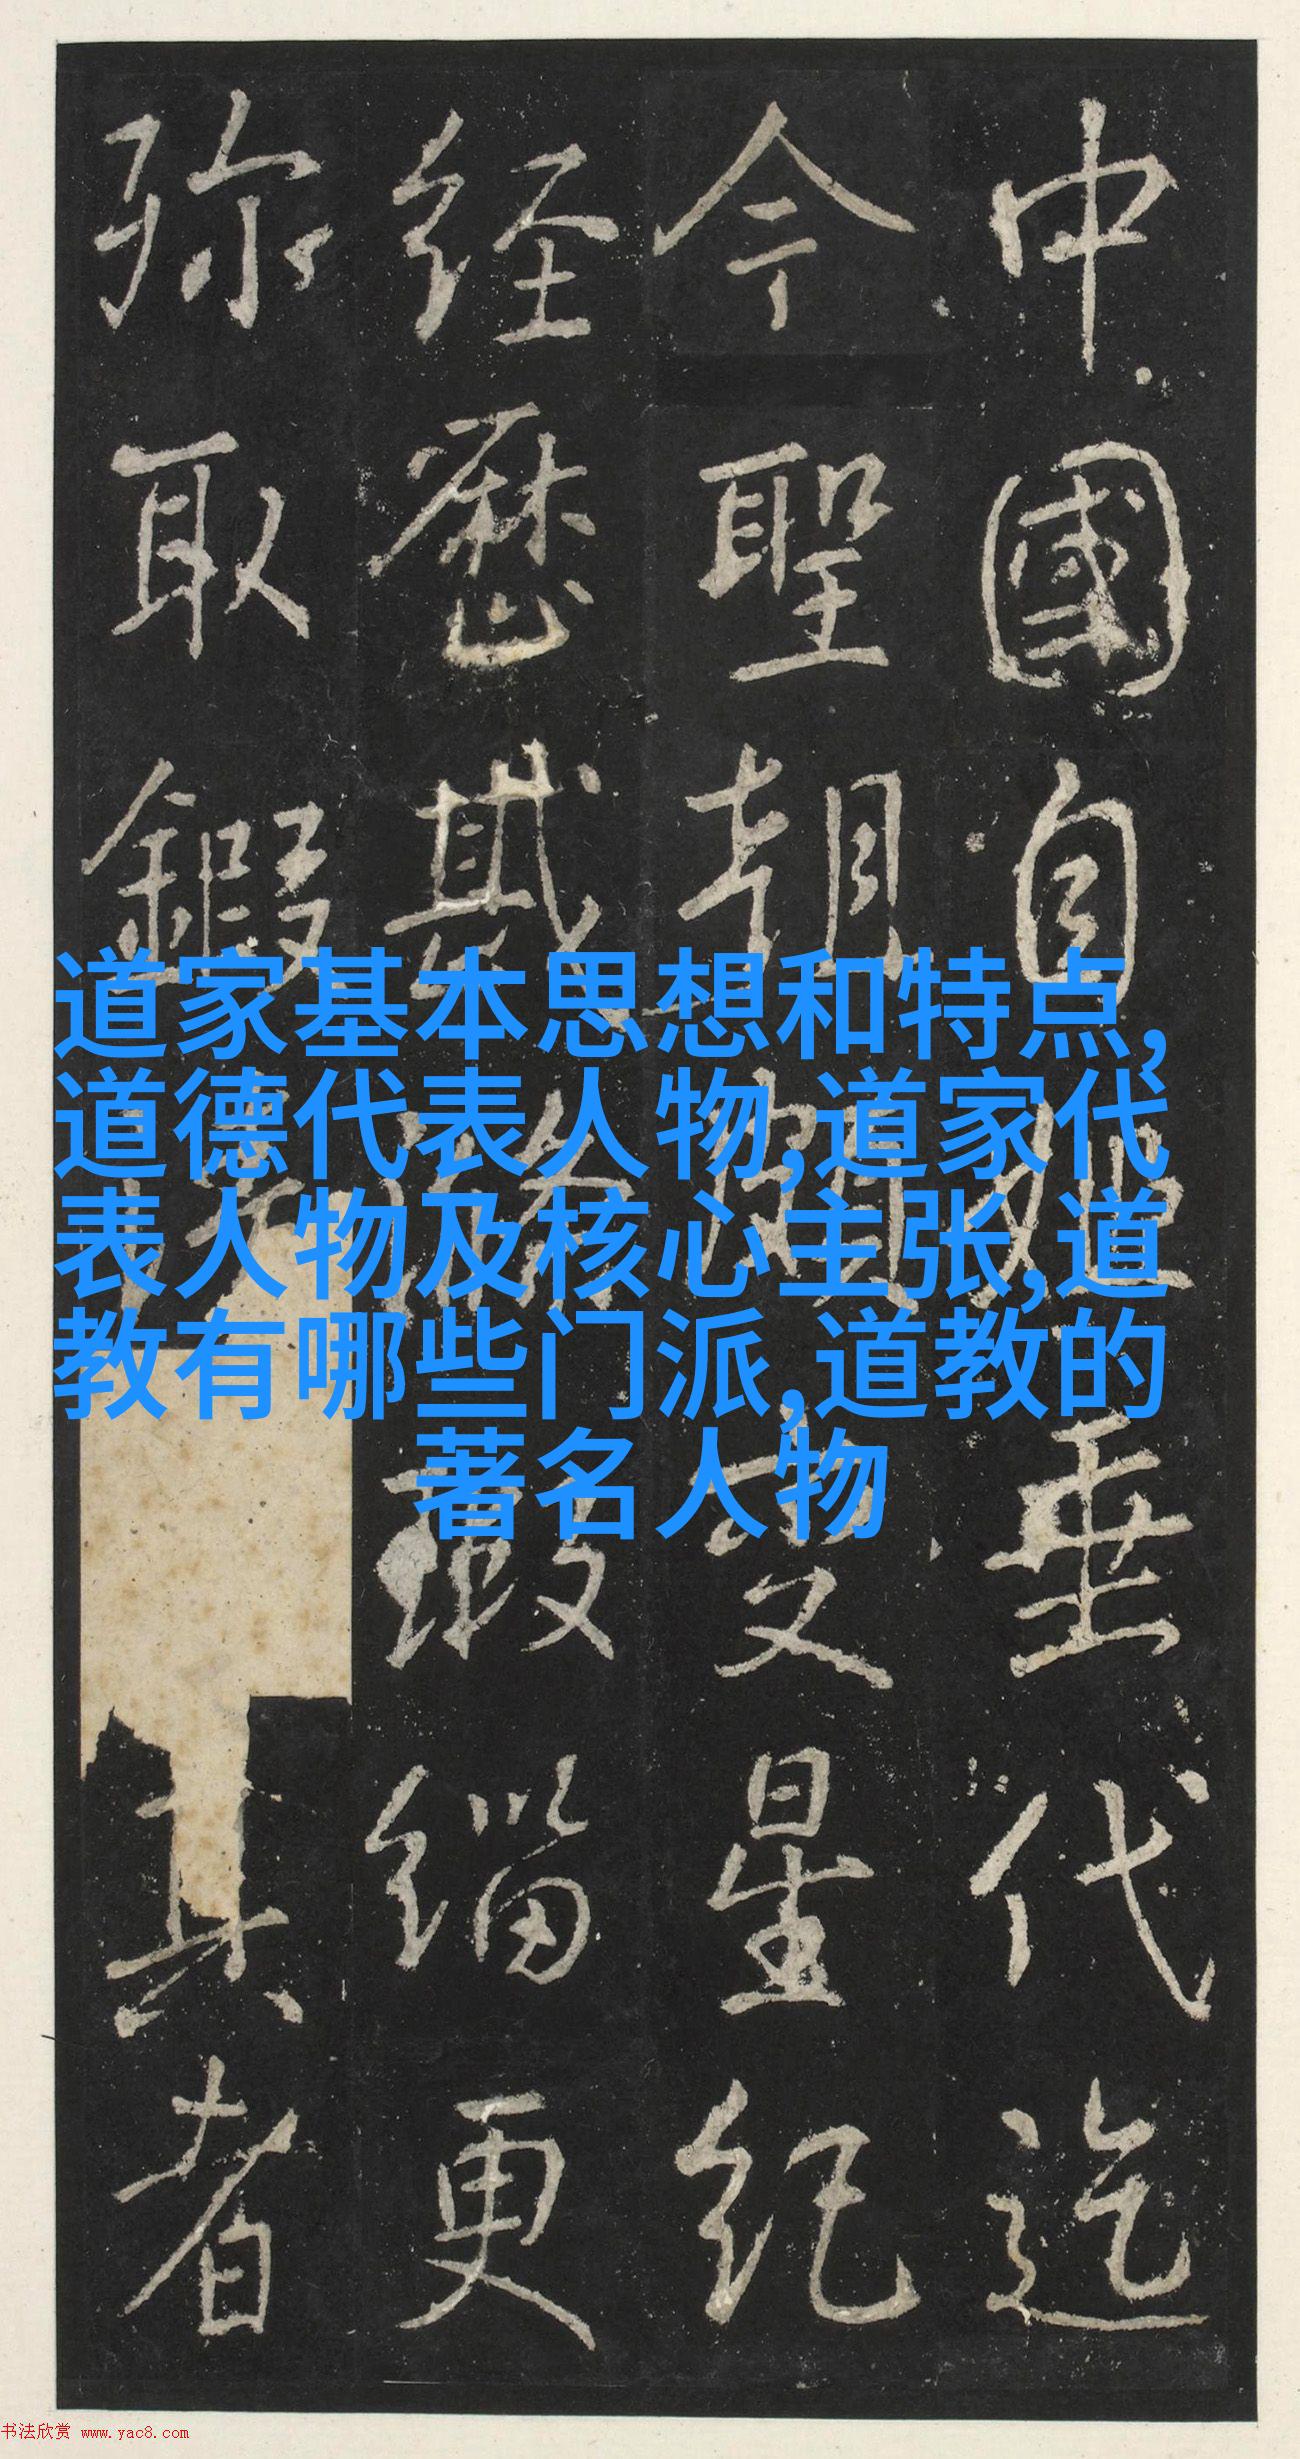 中國自垂代迄
今聖朝星紀
经歷緇更
弥取真者
道家基本思想和特点,
道德代表人物,道家代
表人物及核心主张,道
教有哪些门派,道教的
著名人物
书法欣赏 www.yac8.com